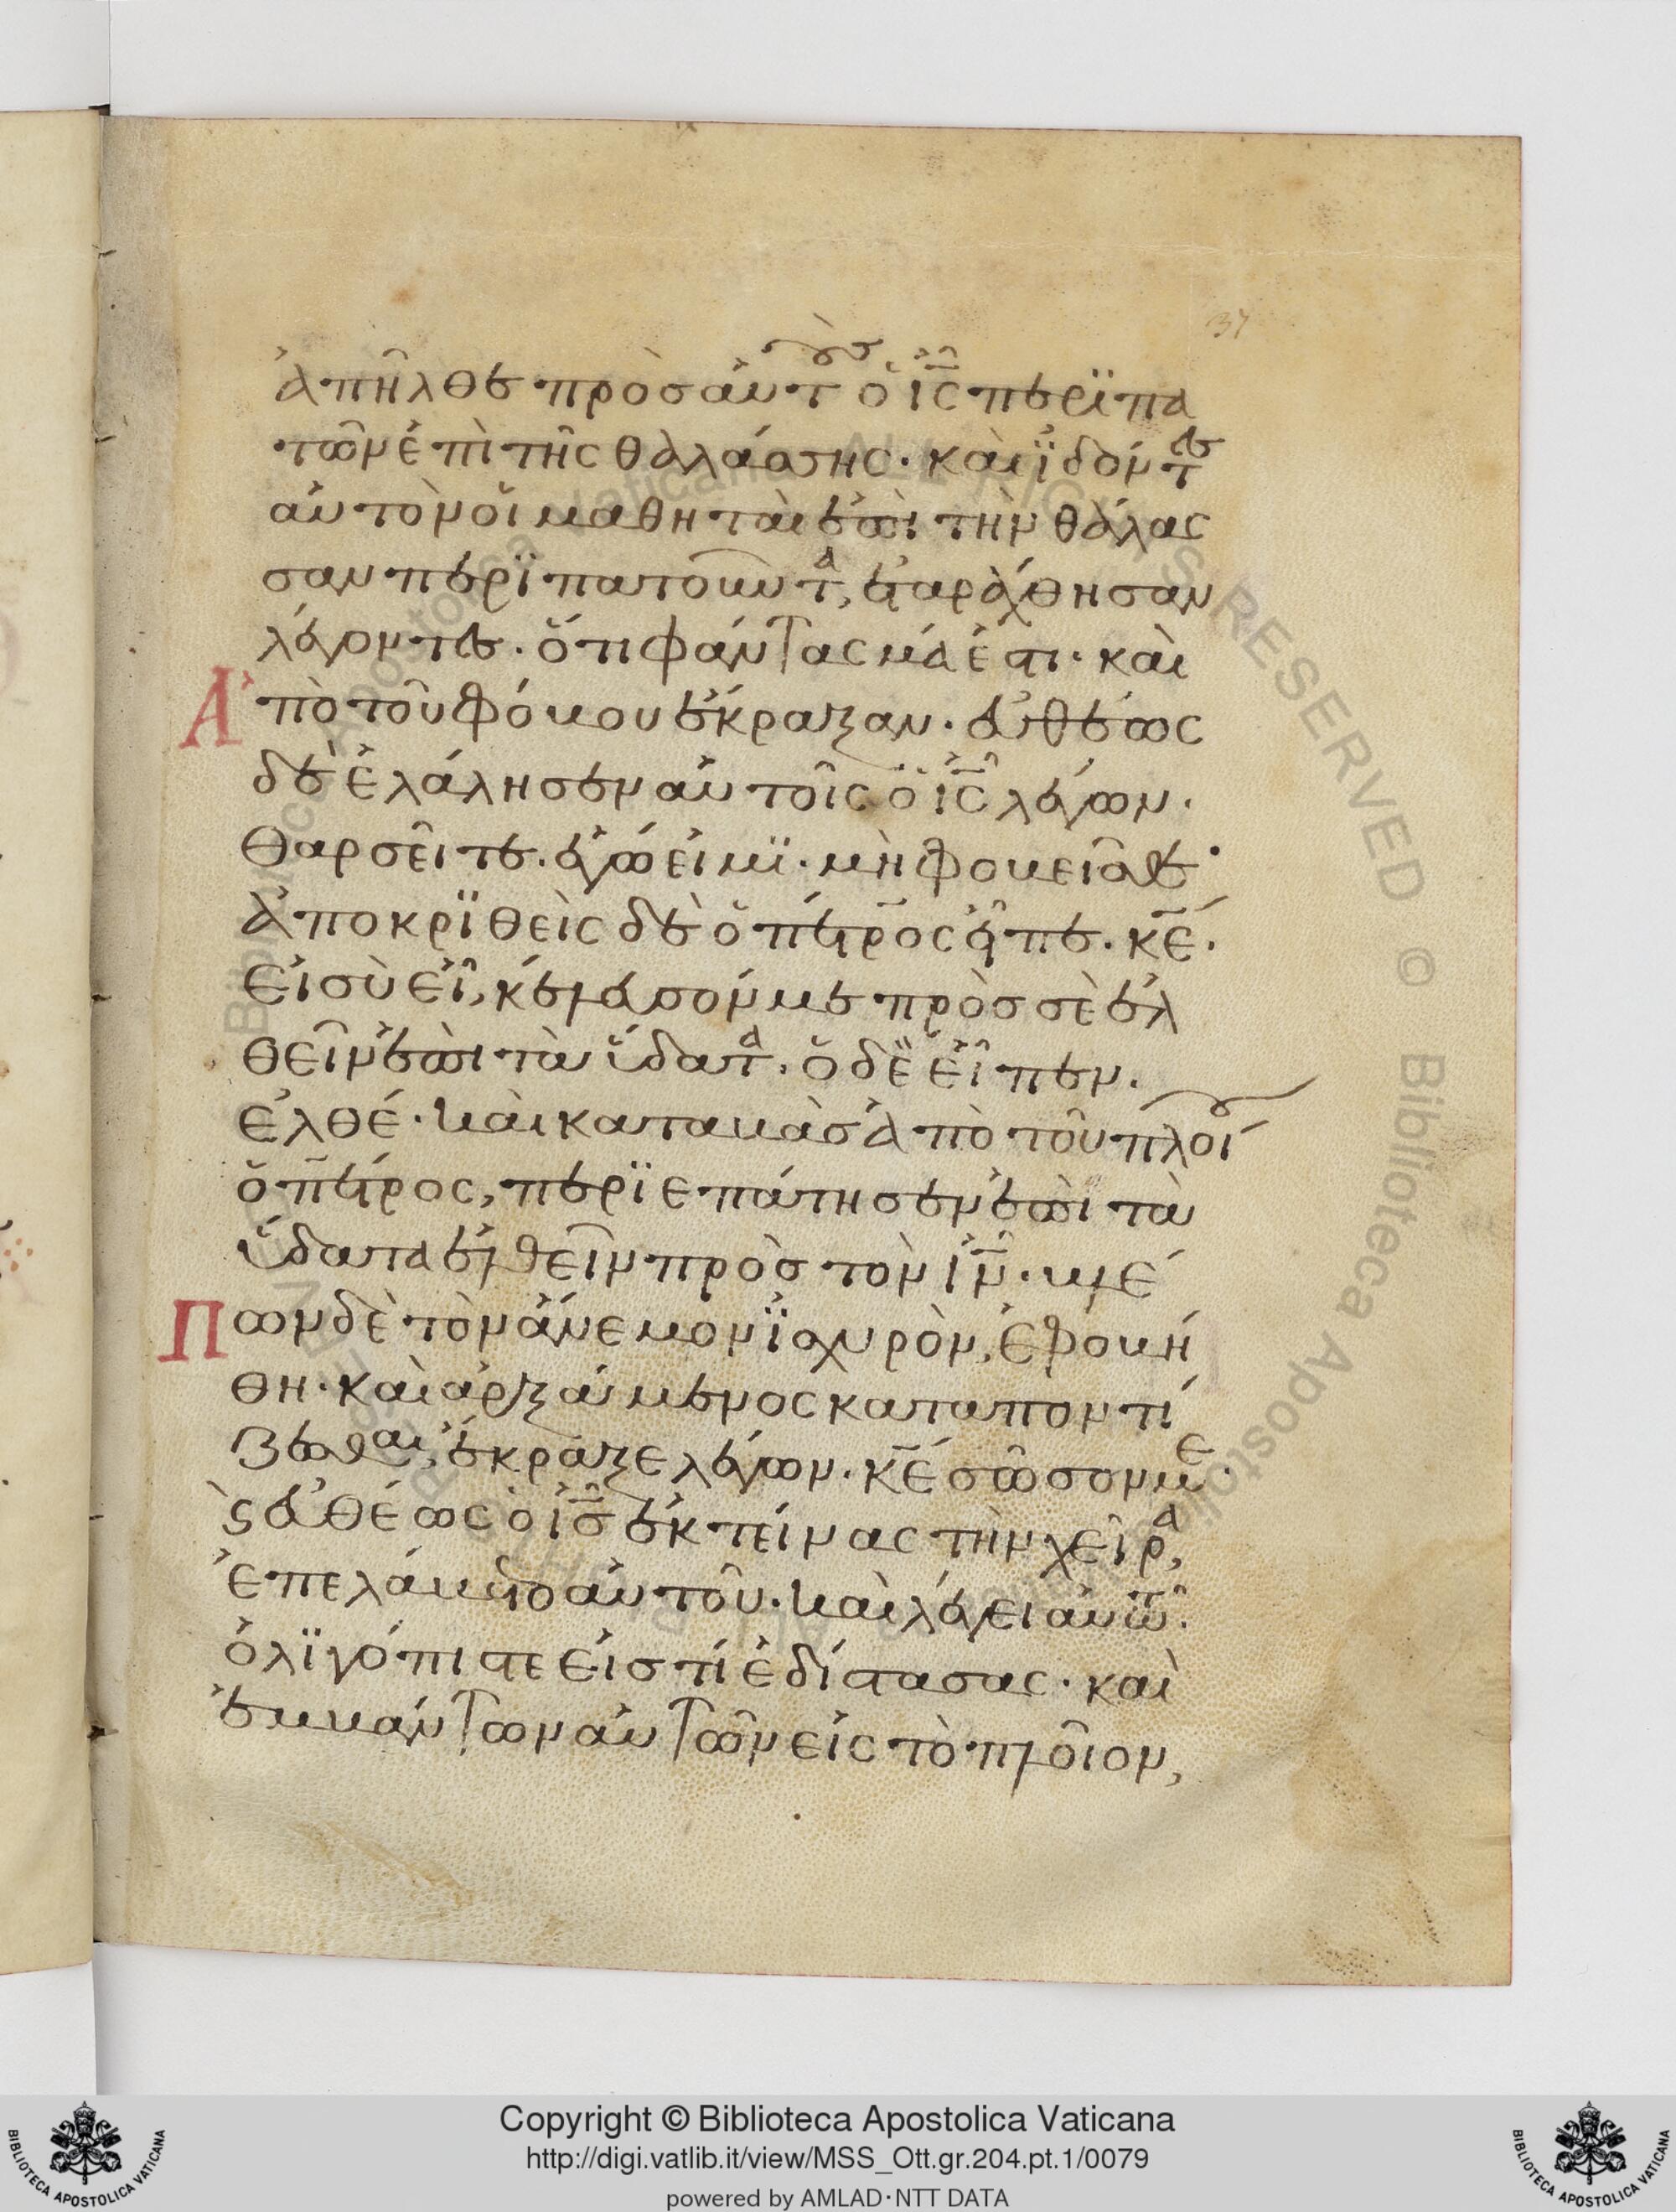 37
ἀπῆλθε πρὸσ αὐτοὺσ ὁ ις̅ περϊπα
τῶν ἐπὶ τῆς θαλάσσης· καὶ ϊδόντες
αὐτὸν οἱ μαθηταὶ ἐπὶ τὴν θάλασ
σαν περϊπατοῦντα, ἐταράχθησαν
λέγοντες· ὅτι φάντασμά ἐστι· καὶ
Ἀπὸ τοῦ φόβου ἔκραξαν· εὐθέως
δὲ ἐλάλησεν αὐτοῖς ὁ ις̅ λέγων·
θαρσεῖτε· ἐγώ εἰμϊ· μὴ φοβεῖσθε·
ἀποκρϊθεὶς δὲ ὁ πέτρος εἶπε· κε̅·
εἰ σὺ εἶ, κέλευσόν με πρὸσ σὲ ἐλ
θεῖν ἐπὶ τὰ ὕδατα· ὁ δὲ εἶπεν·
ἐλθέ· καὶ καταβὰσ ἀπὸ τοῦ πλοίου
ὁ πέτρος, περϊεπάτησεν ἐπὶ τὰ
ὕδατα ἐλθεῖν πρὸσ τὸν ιν̅· βλέ
Πων δὲ τὸν ἄνεμον ϊσχυρὸν, ἐφοβή
θη· καὶ ἀρξάμενος καταποντί
ζεσθαι, ἔκραξε λέγων· κε̅ σῶσον με·
ϛ εὐθέως ὁ ισ̅ ἐκτείνας τὴν χεῖρα,
ἐπελάβετο αὐτοῦ· καὶ λέγει αὐτῶ·
ὀλϊγόπιστε εἰσ τί ἐδίστασας· καὶ
ἐμβάντων αὐτῶν εἰς τὸ πλοῖον,
© Biblioteca Apostolica Vaticana ALL RIGHTS RESERVED © Biblioteca Apostolica Vaticana
Copyright © Biblioteca Apostolica Vaticana
http://digi.vatlib.it/view/MSS_Ott.gr.204.pt.1/0079
powered by AMLAD·NTT DATA
BIBLIOTECA APOSTOLICA VATICANA
BIBLIOTECA APOSTOLICA VATICANA